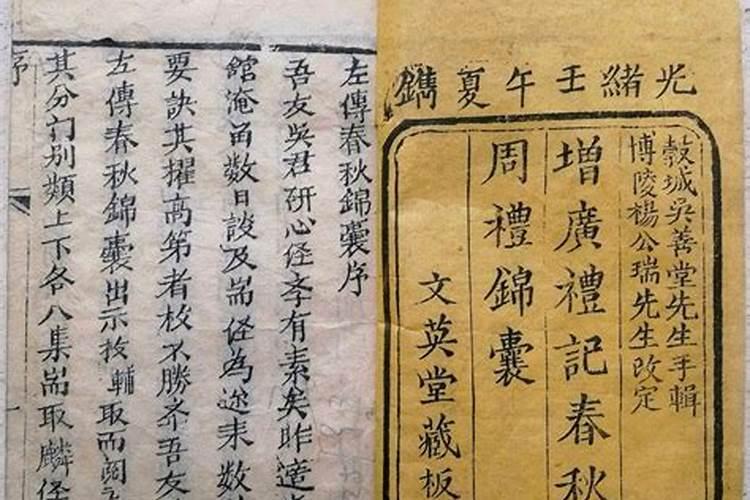 光緒壬午夏鐫
穀城吳善堂先生手輯
博陵楊公瑞先生改定
增廣禮記春秋
周禮錦囊
文英堂藏板
左傳春秋錦囊序
吾友吳君研心径斈有素矣昨
館淹留数日談及耑径為迩来数
要訣其擢高第者枚不勝吾友
左傳春秋錦囊出示扵輔取而閱
其分门别類上下各八集耑取麟径
序